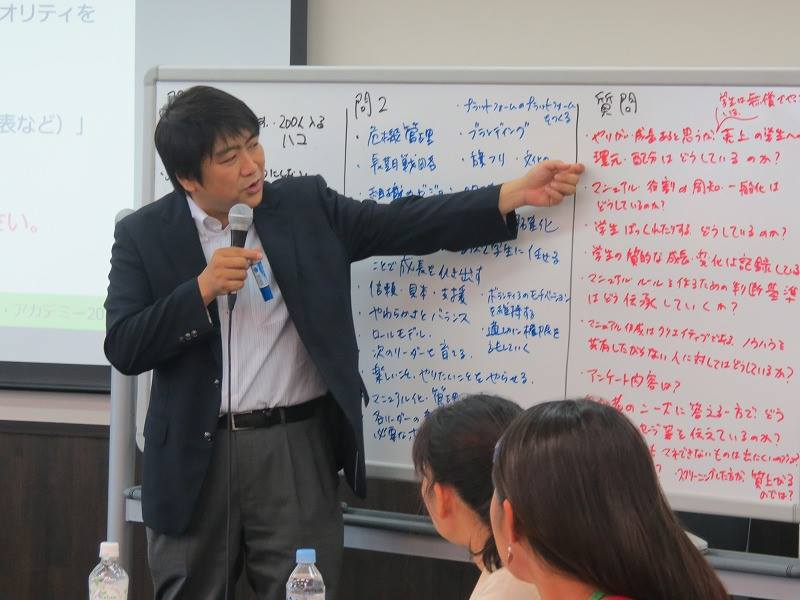 オリティを
表など）」
い。
・アカデミー20
・200人入る
ハコ
問2
・プラットフォームのプラットフォーム
をつくる
・危機管理
・ブランディング
・長期戦回答
・旗フリ
・文化の
ことで成長を引き出す
・信頼・見本・支援
・ボランティアのモチベーション
を維持する
・やわらかさとバランス
・ロールモデル
次のリーダーを育てる
・楽しいこと、やりたいことをやらせる。
・マニュアル化・管理
各リーダーの
必要な
質問
・やりがい・成長あると思うが、
の学生への
還元・配分はどうしているのか？
・マニュアル・役割の周知・一般化は
どうしているのか？
・学生ばっくれたりする どうしているのか？
・学生の質的な成長・変化は記録している
・マニュアル ルールを作るための判断基準
はどう伝承していくか？
・マニュアル作成はクリエイティブである。ノウハウを
共有したがらない人に対してはどうしているか？
・アンケート内容は？
のニーズに答える一方で、どう
を伝えているのか？
・スクリーニングした方が、質上がる
のでは？